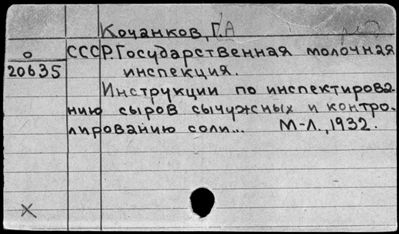 Кочанков, Г.А
О
20635
СССР. Государственная молочная
инспекция.
Инструкции по инспектирова-
нию сыров сычужных и контро-
лированию соли... М-Л., 1932.
X